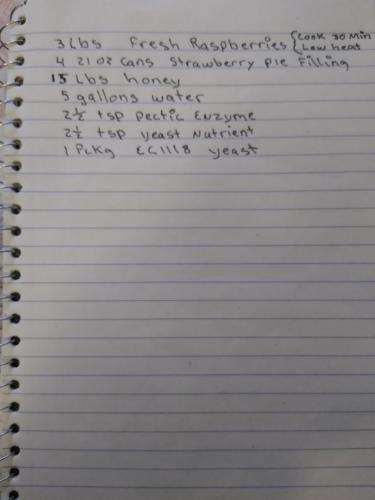 3 Lbs Fresh Raspberries { Cook 30 Min
Low heat
4 21 oz cans Strawberry Pie Filling
15 Lbs honey
5 gallons water
2½ tsp pectic Enzyme
2½ tsp yeast Nutrient
1 Pckg EC1118 yeast